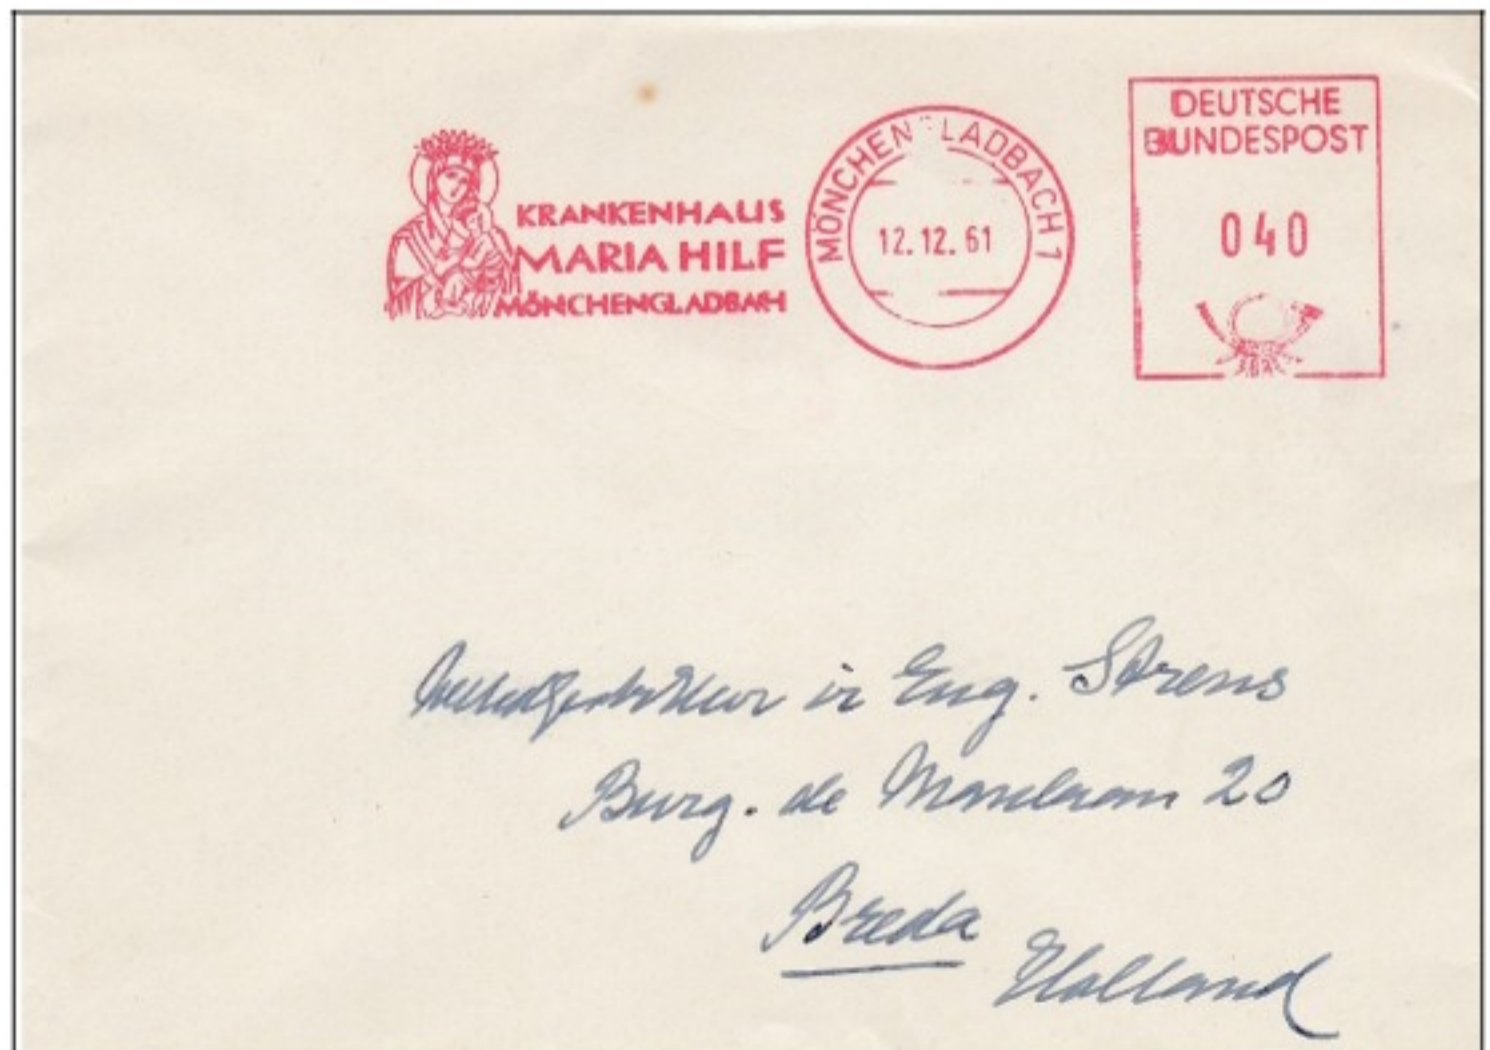 KRANKENHAUS
MARIA HILF
MÖNCHENGLADBACH
MÖNCHENGLADBACH 1
12.12.61
DEUTSCHE
BUNDESPOST
040
ir Eug. Strens
Burg. de 20
Breda
Holland